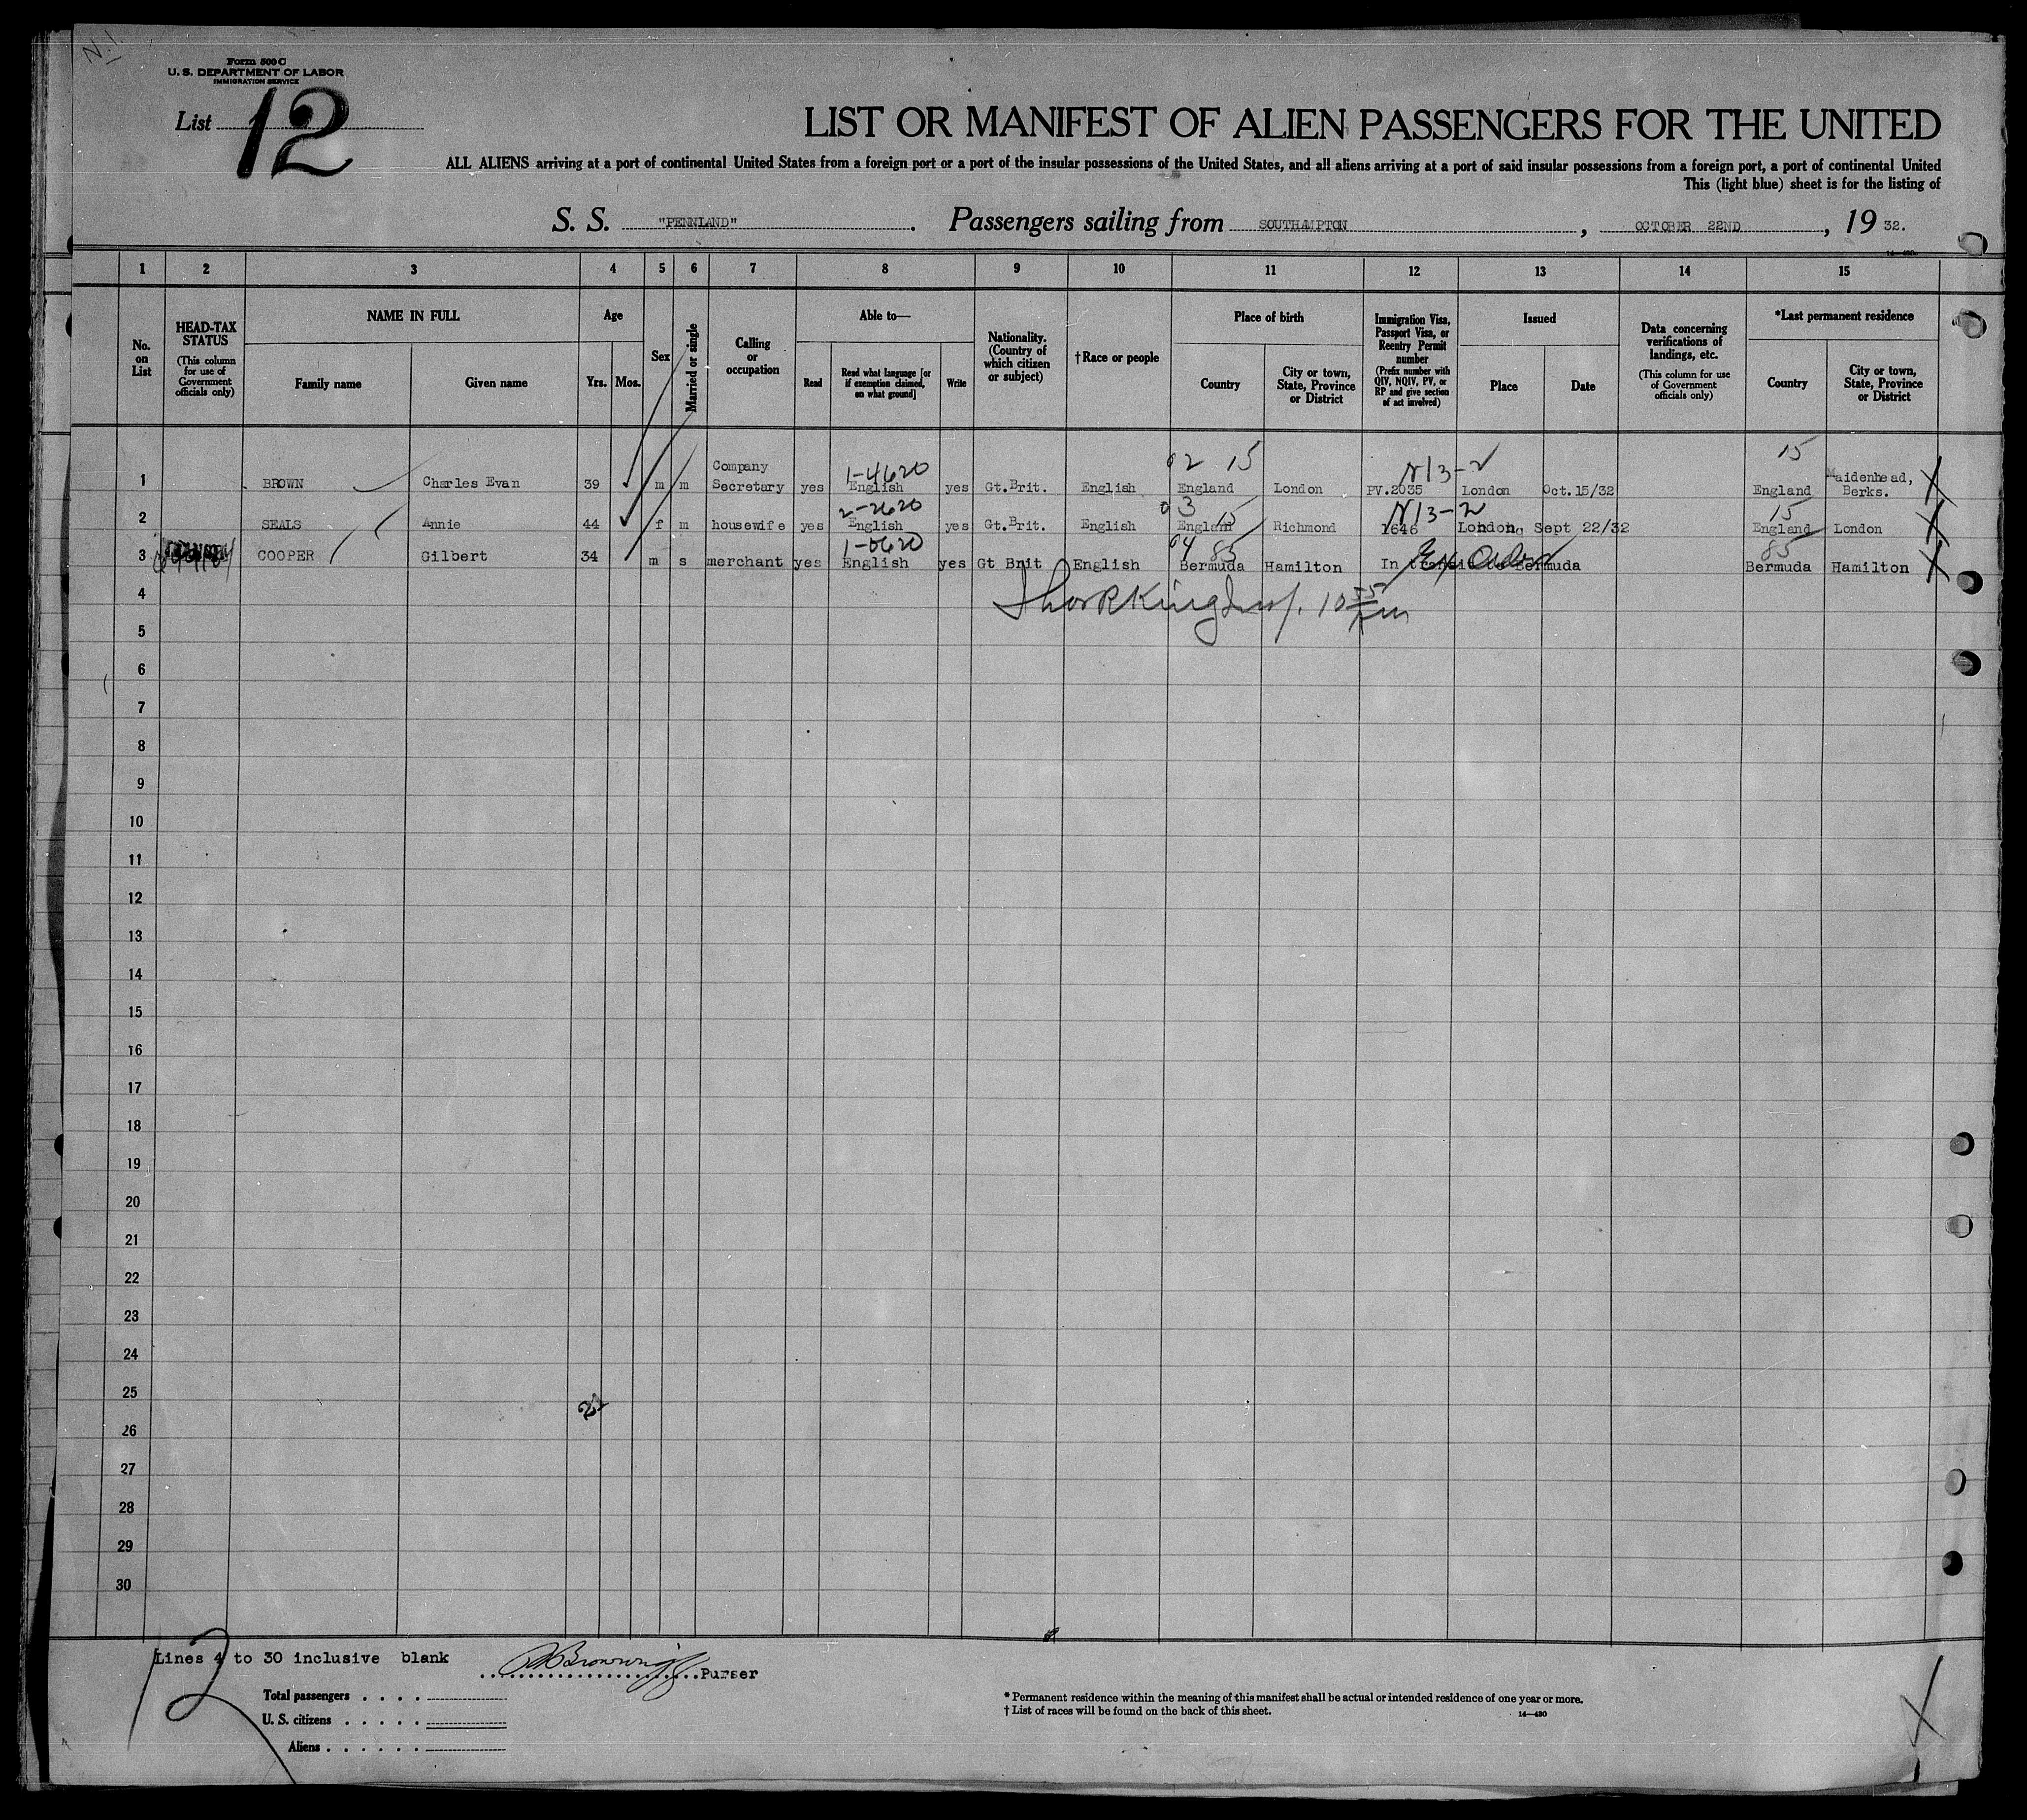 N.I.
Form 500 C
U. S. DEPARTMENT OF LABOR
IMMIGRATION SERVICE
List 12
LIST OR MANIFEST OF ALIEN PASSENGERS FOR THE UNITED
ALL ALIENS arriving at a port of continental United States from a foreign port or a port of the insular possessions of the United States, and all aliens arriving at a port of said insular possessions from a foreign port, a port of continental United
This (light blue) sheet is for the listing of
S. S. "PENNLAND". Passengers sailing from SOUTHAMPTON, OCTOBER 22ND, 19 32.
14—480
1 2 3 4 5 6 7 8 9 10 11 12 13 14 15
No. on List
HEAD-TAX STATUS (This column for use of Government officials only)
NAME IN FULL
Family name Given name
Age
Yrs. Mos.
Sex
Married or single
Calling or occupation
Able to—
Read Read what language [or if exemption claimed, on what ground] Write
Nationality. (Country of which citizen or subject)
†Race or people
Place of birth
Country City or town, State, Province or District
Immigration Visa, Passport Visa, or Reentry Permit number (Prefix number with QIV, NQIV, PV, or RP and give section of act involved)
Issued
Place Date
Data concerning verifications of landings, etc. (This column for use of Government officials only)
*Last permanent residence
Country City or town, State, Province or District
1-4620 02 15 N13-2 15
1 BROWN Charles Evan 39 m m Company Secretary yes English yes Gt.Brit. English England London PV.2035 London Oct.15/32 England Maidenhead, Berks. X
2-2620 03 15 N13-2 15
2 SEALS Annie 44 f m housewife yes English yes Gt.Brit. English England Richmond 1646 London Sept 22/32 England London X
1-0620 04 85 85
3 COOPER Gilbert 34 m s merchant yes English yes Gt Brit English Bermuda Hamilton In Bermuda Bermuda Hamilton X
4
5
6
7
8
9
10
11
12
13
14
15
16
17
18
19
20
21
22
23
24
25
26
27
28
29
30
Lines 4 to 30 inclusive blank
Purser
12
Total passengers
U. S. citizens
Aliens
* Permanent residence within the meaning of this manifest shall be actual or intended residence of one year or more.
† List of races will be found on the back of this sheet.
14—480
X